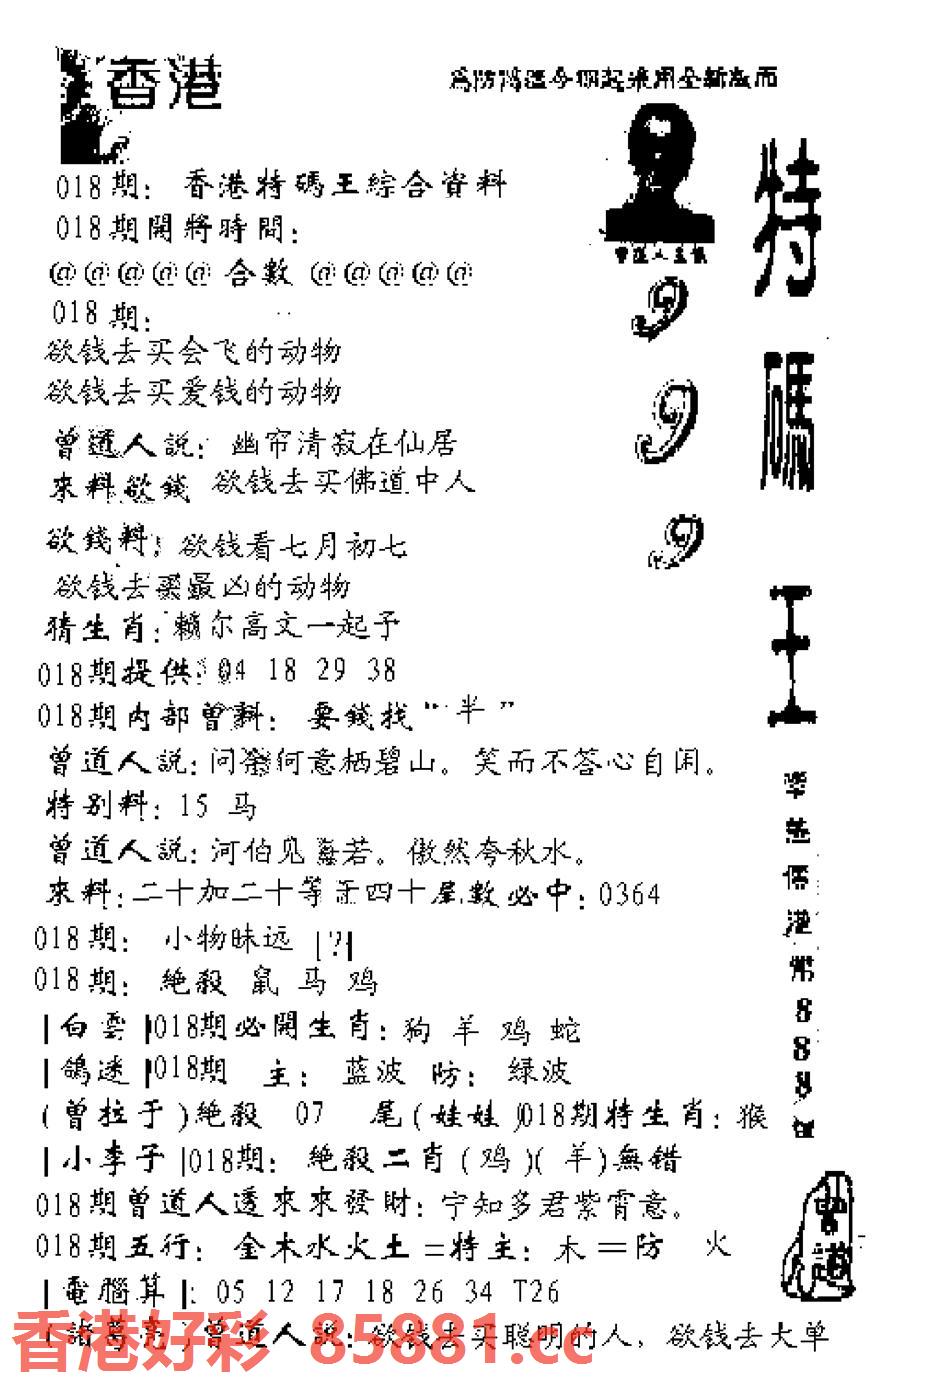 香港
為防濫今期起采用全新版面
018期：香港特碼王綜合資料
018期開將時間：
@@@@@合數@@@@@
018期：
欲钱去买会飞的动物
欲钱去买爱钱的动物
曾道人説：幽帘清寂在仙居
來料欲錢 欲钱去买佛道中人
欲錢料：欲钱看七月初七
欲钱去买最凶的动物
猜生肖：籁尔高文一起予
018期提供：04 18 29 38
018期内部曾料：要錢找“半”
曾道人説：问余何意栖碧山。笑而不答心自闲。
特别料：15 马
曾道人説：河伯见海若。傲然夸秋水。
來料：二十加二十等于四十尾數必中：0364
018期：小物昧远 |?|
018期：絶殺 鼠 马 鸡
|白雲|018期必開生肖：狗 羊 鸡 蛇
|鴿迷|018期 主：蓝波 防：绿波
(曾拉于)絶殺 07 尾(娃娃)018期特生肖：猴
|小李子|018期：絶殺二肖(鸡)(羊)無错
018期曾道人透來來發財：宁知多君紫霄意。
018期五行：金木水火土=特主：木=防 火
|電腦算|：05 12 17 18 26 34 T26
(諸葛亮)曾道人説：欲钱去买聪明的人，欲钱去大单
香港好彩 85881.cc
特
碼
王
曾道人主儀
9
9
9
港
幣
8
8
8
曾道